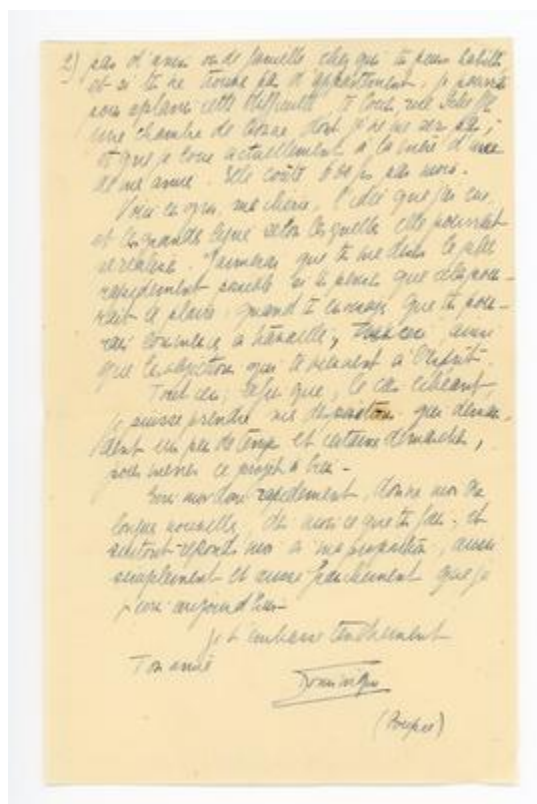 2) pas d'amis ou de famille chez qui tu peux habiter
et si tu ne trouve pas d'appartement, je pourrai
une chambre de bonne dont je ne me sers pas,
et que je loue actuellement à la mère d'une
de mes amie. Elle coûte par mois.
Voici en gros, ma chérie, l'idée que j'ai eue
et les grandes ligne selon lesquelles elle pourrait
se réaliser. J'aimerais que tu me dises le plus
rapidement possible si tu penses que cela pour-
rait te plaire, quand tu envisages que tu pour-
rais commencer à travailler, ainsi
que les objections qui te viennent à l'esprit.
Tout ceci afin que, le cas échéant,
je puisse prendre me dispositions qui deman-
dent un peu de temps et certaine démarches,
pour mener ce projet à bien -
Ecris moi donc rapidement, donne moi de
longue nouvelle, dis moi ce que tu fais, et
surtout répond moi à ma proposition, aussi
simplement et aussi franchement que je
aujourd'hui
Je t'embrasse tendrement
Ton amie
Dominique